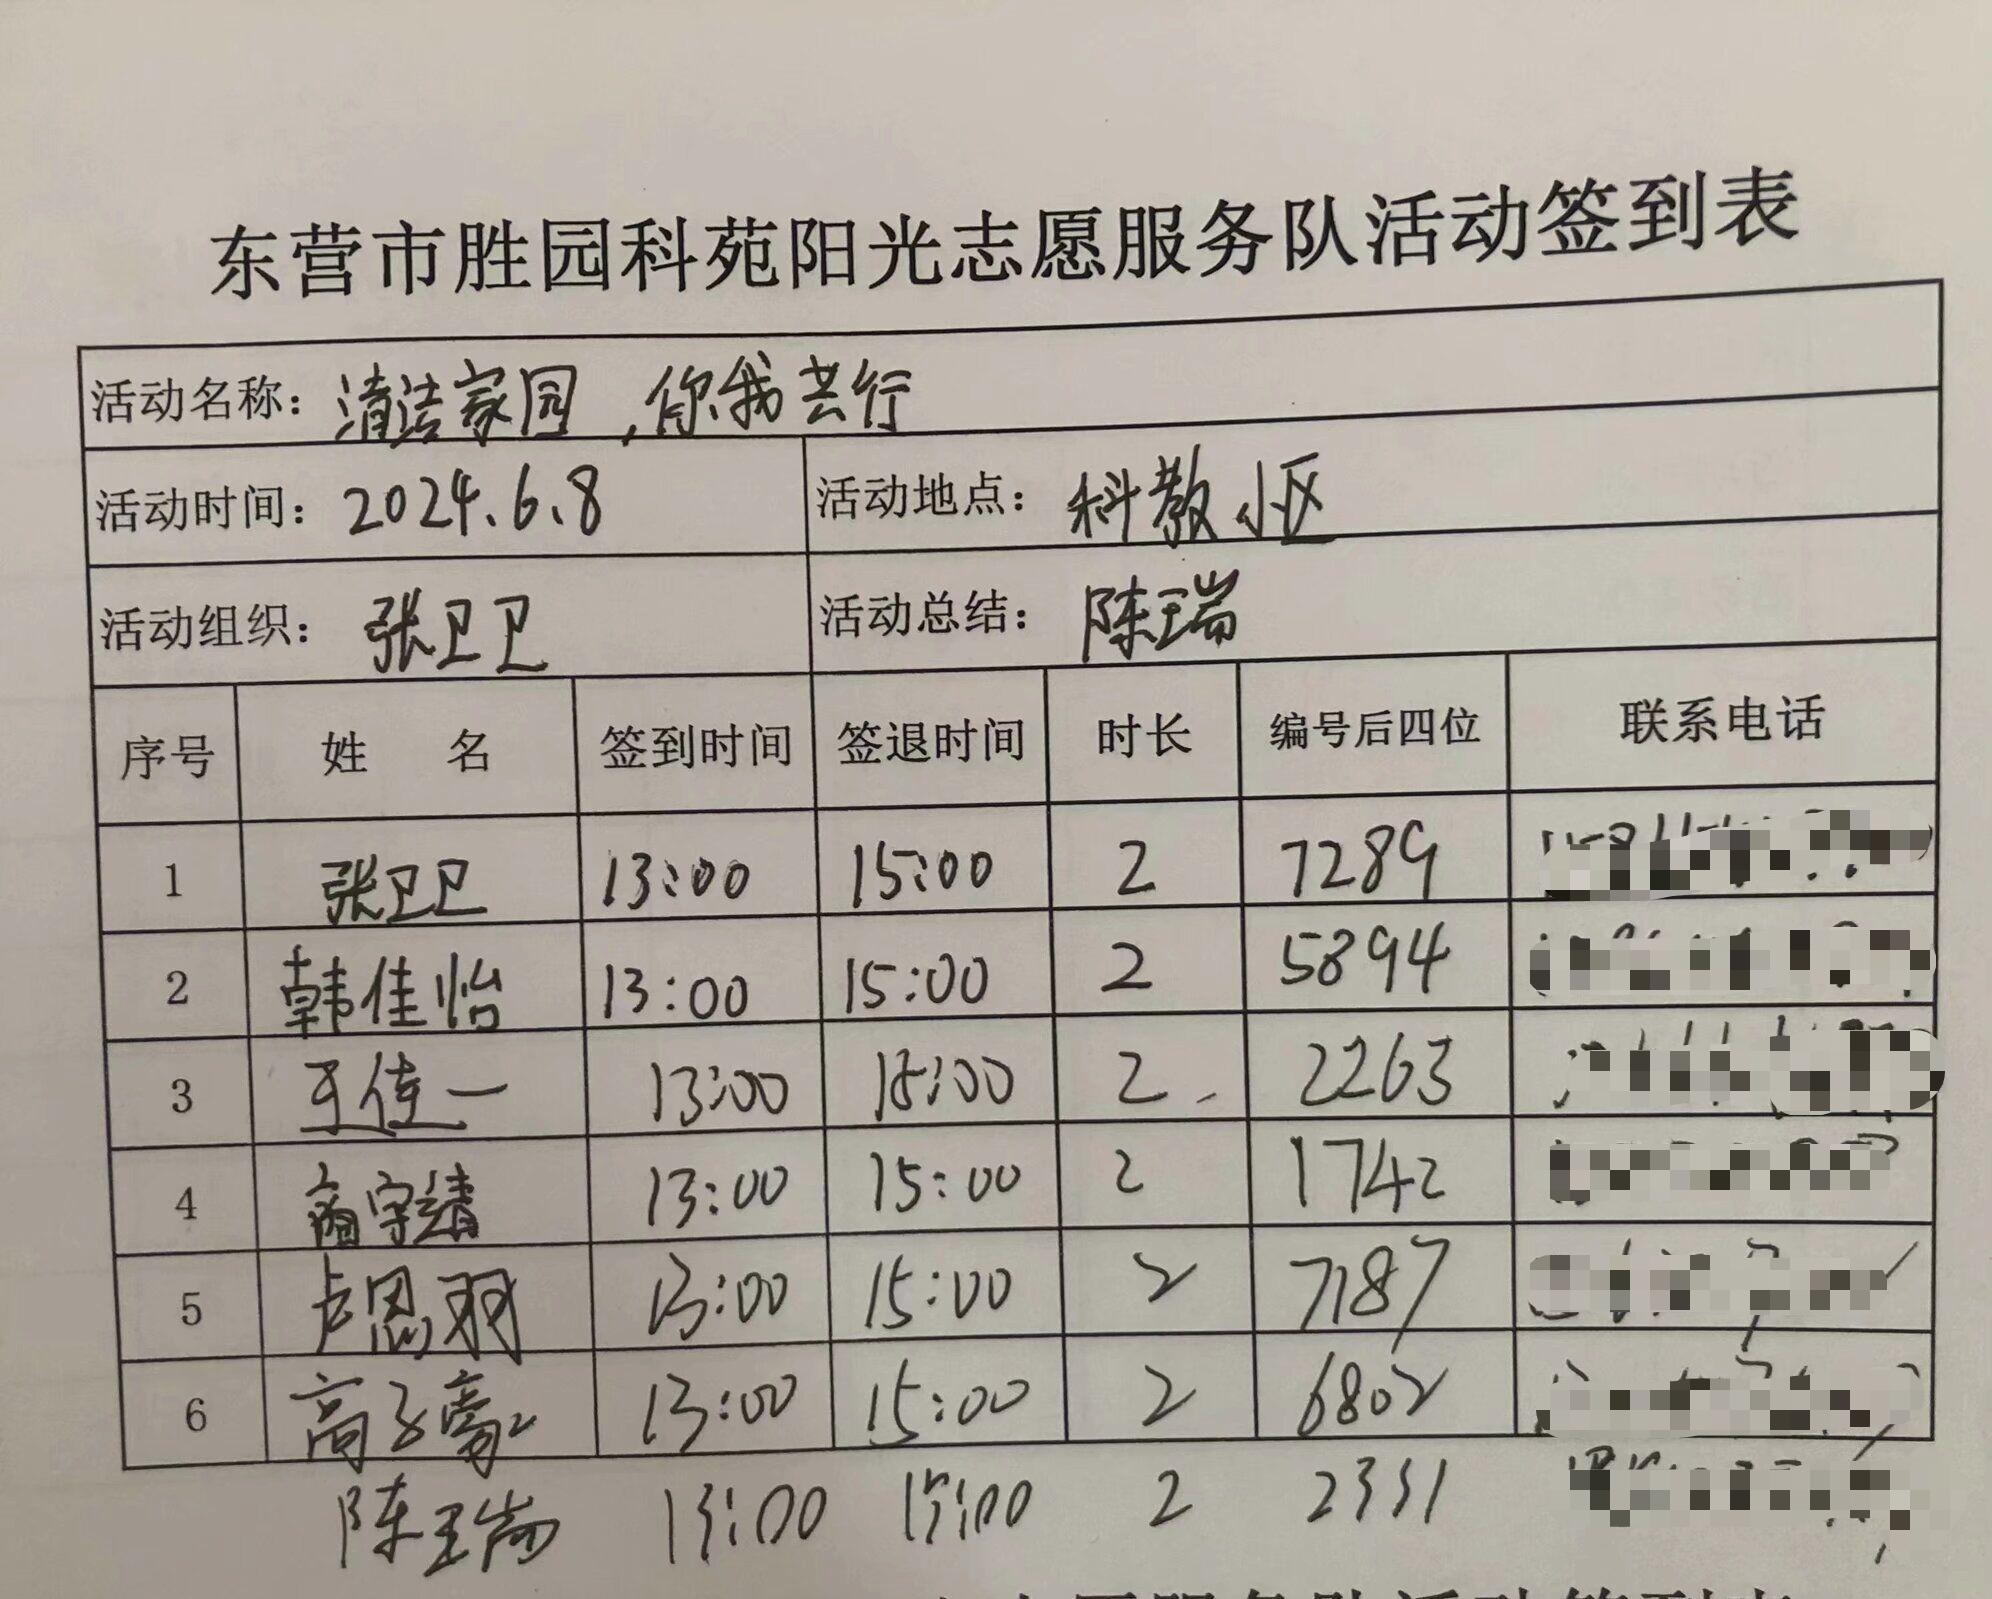 东营市胜园科苑阳光志愿服务队活动签到表
活动名称：清洁家园，你我共行
活动时间：2024.6.8 活动地点：科教小区
活动组织：张卫卫 活动总结：陈瑞
序号 姓 名 签到时间 签退时间 时长 编号后四位 联系电话
1 张卫卫 13:00 15:00 2 7289
2 韩佳怡 13:00 15:00 2 5894
3 王佳一 13:00 15:00 2 2263
4 13:00 15:00 2 1742
5 卢恩羽 13:00 15:00 2 7187
6 高子豪 13:00 15:00 2 6802
陈瑞 13:00 15:00 2 2331